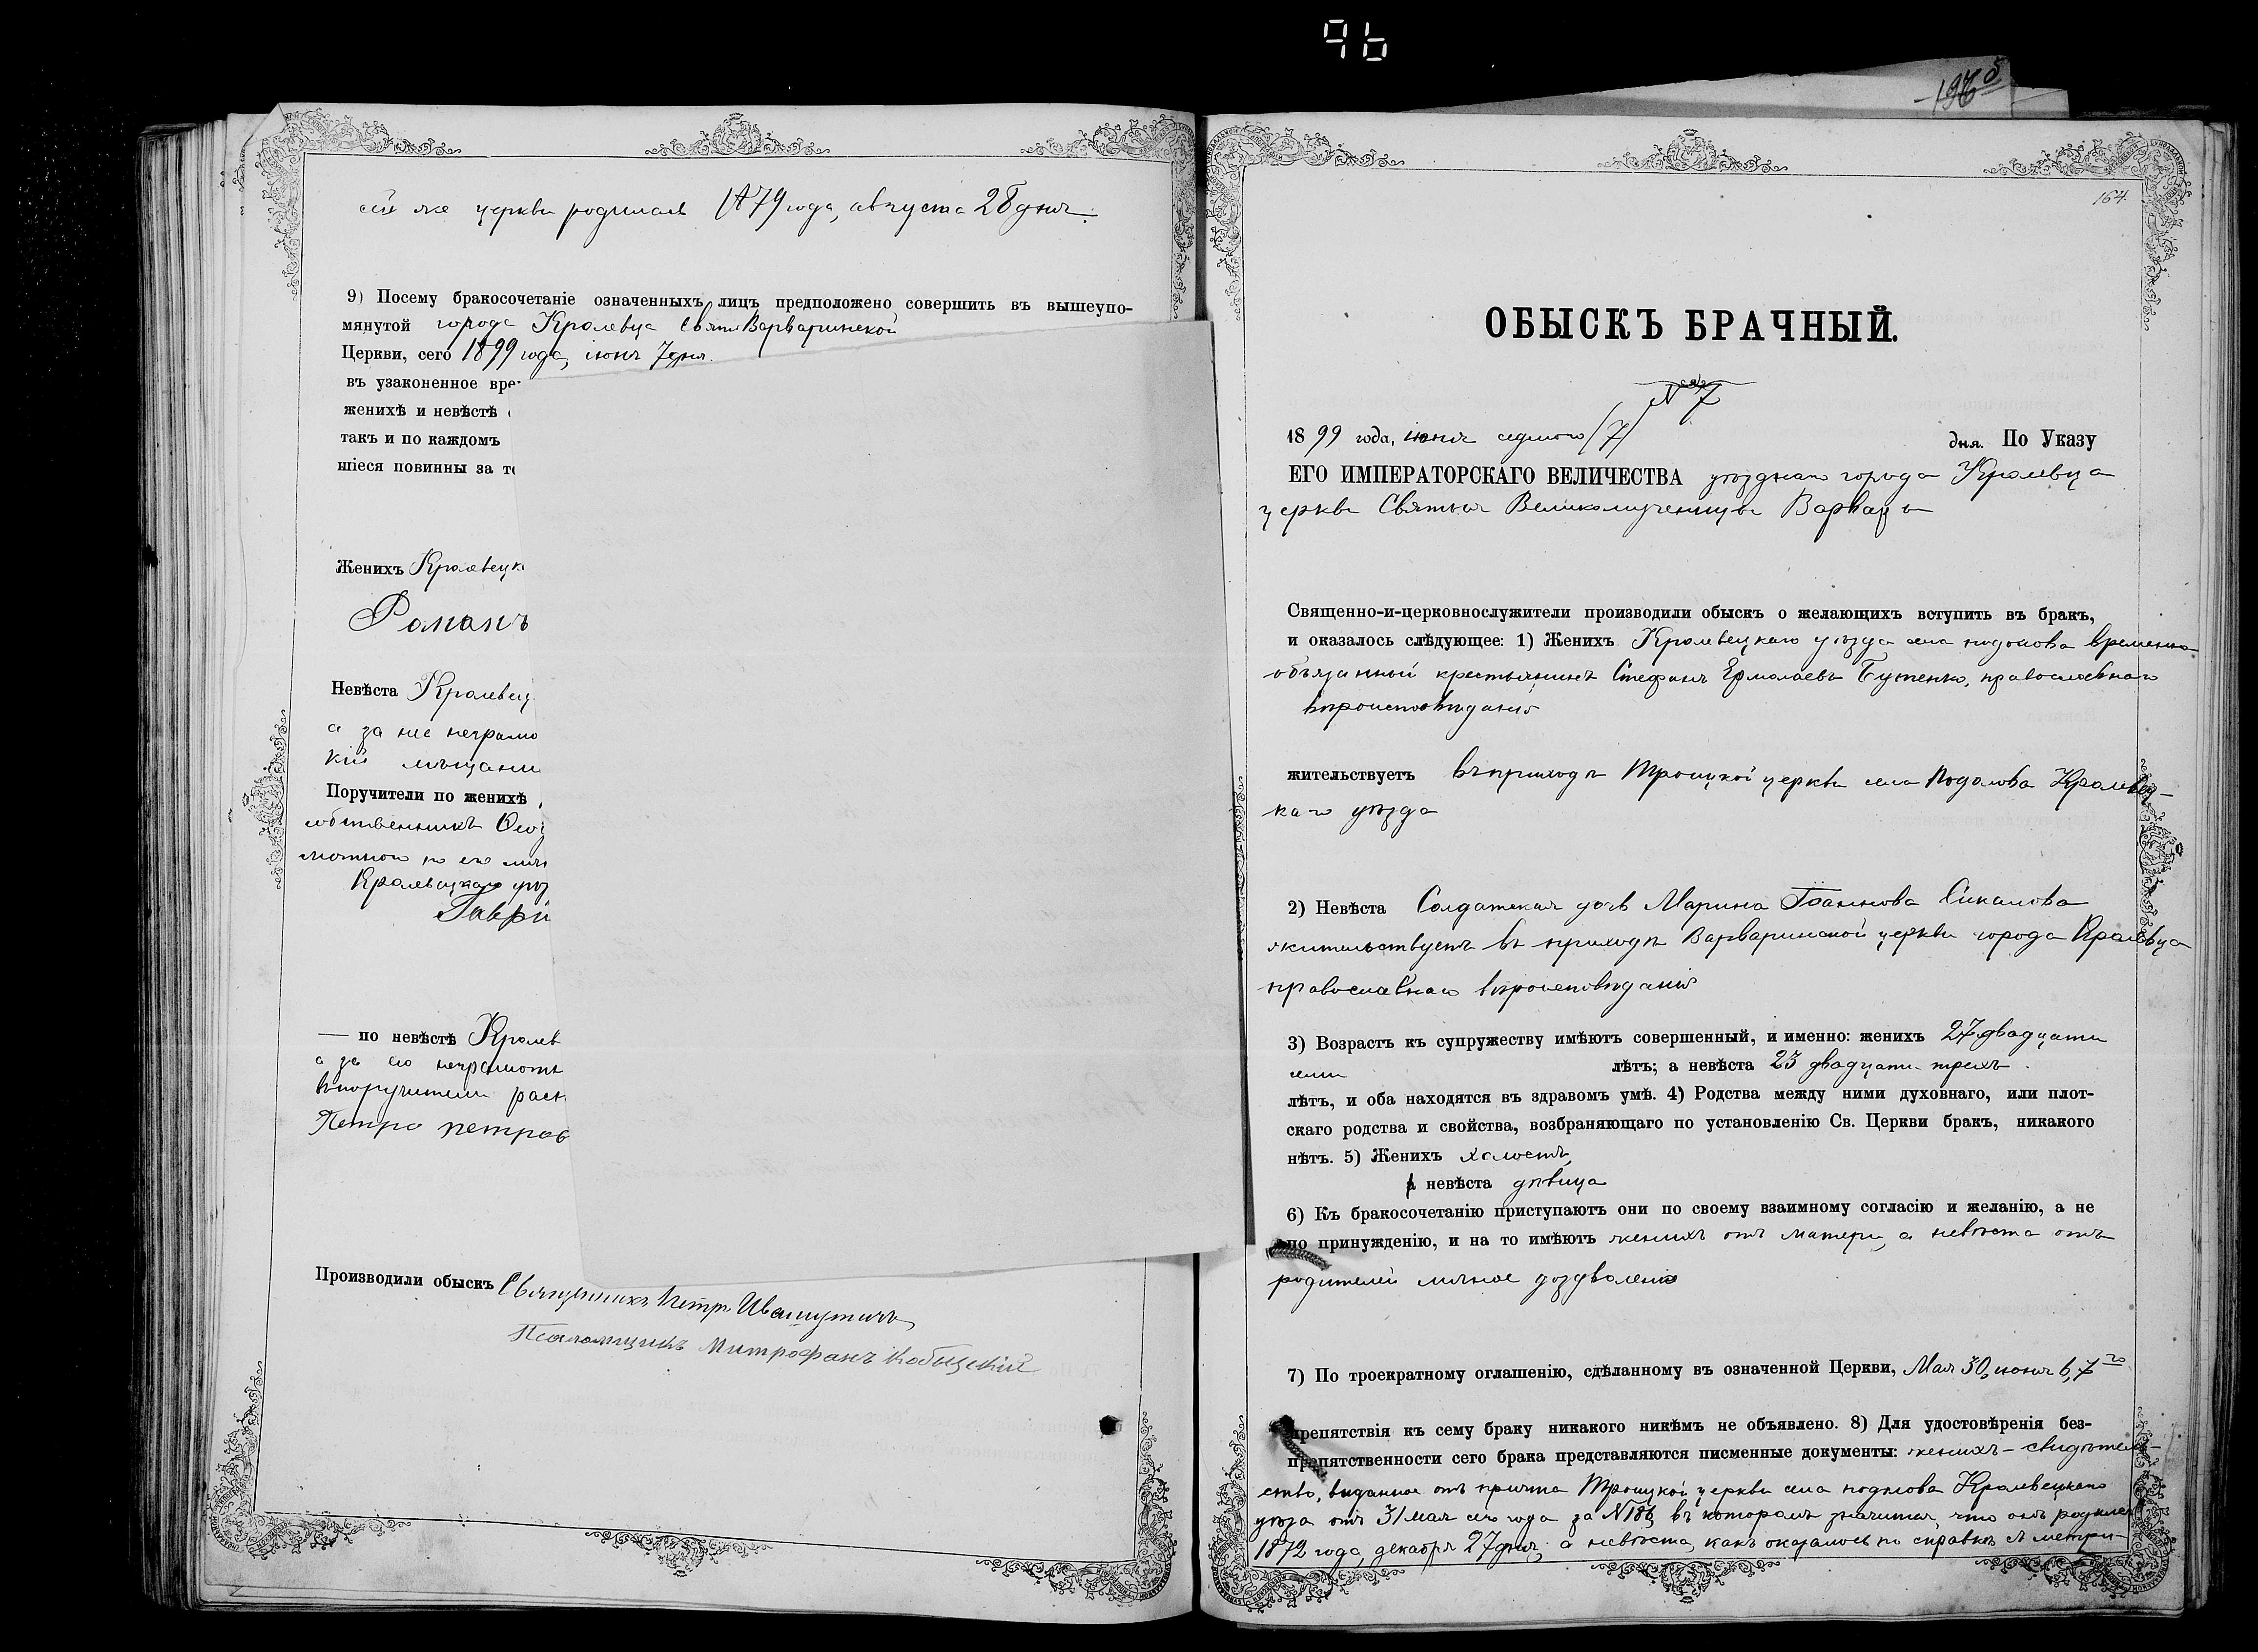 сей же церкви родилась 1879 года, августа 28 дня.
9) Посему бракосочетаніе означенныхъ лицъ предположено совершить въ вышеупо-
мянутой города Кролевца Свято Варваринской
Церкви, сего 1899 года, іюня 7 дня.
въ узаконенное вре
женихѣ и невѣстѣ
такъ и по каждомъ
шіеся повинны за т
Женихъ Кролевецк
Романъ
Невѣста Кролевец
а за нее неграмо
кій мѣщани
Поручители по женихѣ
собственникъ
мотного по его личн
Кролевецкаго уѣз
Гаври
— по невѣстѣ Кролев
а за его неграмотн
поручители рас
Петро петров
Производили обыскъ Священникъ Петръ
Псаломщикъ Митрофанъ Кобицкій
96
164.
ОБЫСКЪ БРАЧНЫЙ.
N 7
1899 года, іюня седмого /7/ дня. По Указу
ЕГО ИМПЕРАТОРСКАГО ВЕЛИЧЕСТВА уѣзднаго города Кролевца
церкви Святыя Великомученицы Варвары
Священно-и-церковнослужители производили обыскъ о желающихъ вступить въ бракъ,
и оказалось слѣдующее: 1) Женихъ Кролевецкаго уѣзда села Подолова временно
обязанный крестьянинъ Стефанъ Ермолаевъ Бутенко, православнаго
вѣроисповѣданія
жительствуетъ въ приходѣ Троицкой церкви села Подолова Кролевец-
каго уѣзда
2) Невѣста Солдатская дочь Марина Іоаннова Сикалова
жительствуетъ въ приходѣ Варваринской церкви города Кролевца
православнаго вѣроисповѣданія
3) Возрастъ къ супружеству имѣютъ совершенный, и именно: женихъ 27 двадцати
семи лѣтъ; а невѣста 23 двадцати трехъ
лѣтъ, и оба находятся въ здравомъ умѣ. 4) Родства между ними духовнаго, или плот-
скаго родства и свойства, возбраняющаго по установленію Св. Церкви бракъ, никакого
нѣтъ. 5) Женихъ холостъ,
а невѣста дѣвица
6) Къ бракосочетанію приступаютъ они по своему взаимному согласію и желанію, а не
по принужденію, и на то имѣютъ женихъ отъ матери, а невѣста отъ
родителей личное дозволеніе
7) По троекратному оглашенію, сдѣланному въ означенной Церкви, Мая 30, іюня 6, 7го
препятствія къ сему браку никакого никѣмъ не объявлено. 8) Для удостовѣренія без-
препятственности сего брака представляются писменные документы: женихъ – свидѣтель-
ство, выданное отъ причта Троицкой церкви села Подолова Кролевецкаго
уѣзда отъ 31 мая сего года за N 186, въ которомъ значится, что онъ родился
1872 года, декабря 27 дня; а невѣста, какъ оказалось по справкѣ съ метри-